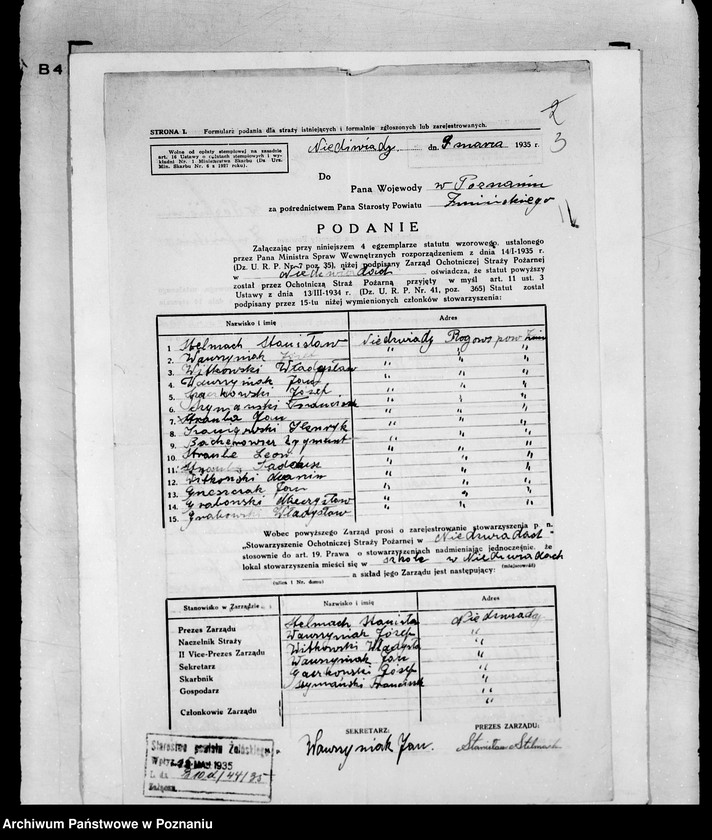 B 4
2
3
STRONA I. Formularz podania dla straży istniejących i formalnie zgłoszonych lub zarejestrowanych.
Wolne od opłaty stemplowej na zasadzie
art. 16 Ustawy o opłatach stemplowych i wy-
Min. Skarbu Nr. 6 z 1927 roku).
Niedźwiady dn. 9 marca 1935 r.
Do
Pana Wojewody w Poznaniu
za pośrednictwem Pana Starosty Powiatu Żnińskiego
PODANIE
Załączając przy niniejszem 4 egzemplarze statutu wzorowego, ustalonego
przez Pana Ministra Spraw Wewnętrznych rozporządzeniem z dnia 14/I-1935 r.
(Dz. U. R. P. Nr. 7 poz. 35), niżej podpisany Zarząd Ochotniczej Straży Pożarnej
w Niedźwiadach oświadcza, że statut powyższy
został przez Ochotniczą Straż Pożarną przyjęty w myśl art. 11 ust. 3
Ustawy z dnia 13/III-1934 r. (Dz. U. R. P. Nr. 41, poz. 365) Statut został
podpisany przez 15-tu niżej wymienionych członków stowarzyszenia:
Nazwisko i imię Adres
1. Stelmach Stanisław Niedźwiady Rogowo pow Żnin
2. Wawrzyniak Józef " " "
3. Witkowski Władysław " " "
4. Wawrzyniak Jan " " "
5. Gackowski Józef " " "
6. Szymański Franciszek " " "
7. Straube Jan " " "
8. Henryk " " "
9. Zygmunt " " "
10. Straube Leon " " "
11. Tadeusz " " "
12. Witkowski " " "
13. Jan " " "
14. Grabowski Mieczysław " " "
15. Grabowski Władysław " " "
Wobec powyższego Zarząd prosi o zarejestrowanie stowarzyszenia p. n.
„Stowarzyszenie Ochotniczej Straży Pożarnej w Niedźwiadach
stosownie do art. 19. Prawa o stowarzyszeniach nadmieniając jednocześnie, że
lokal stowarzyszenia mieści się w szkole w Niedźwiadach
(miejscowość)
a skład jego Zarządu jest następujący:
(ulica i Nr. domu)
Stanowisko w Zarządzie Nazwisko i imię Adres
Prezes Zarządu Stelmach Stanisław Niedźwiady
Naczelnik Straży Wawrzyniak Józef "
II Vice-Prezes Zarządu Witkowski Władysław "
Sekretarz Wawrzyniak Jan "
Skarbnik Gackowski Józef "
Gospodarz Szymański Franciszek "
Członkowie Zarządu "
SEKRETARZ: PREZES ZARZĄDU:
Wawrzyniak Jan. Stanisław Stelmach
Starostwo powiatu Żnińskiego
1935
L. dz.
Załącza.
Archiwum Państwowe w Poznaniu